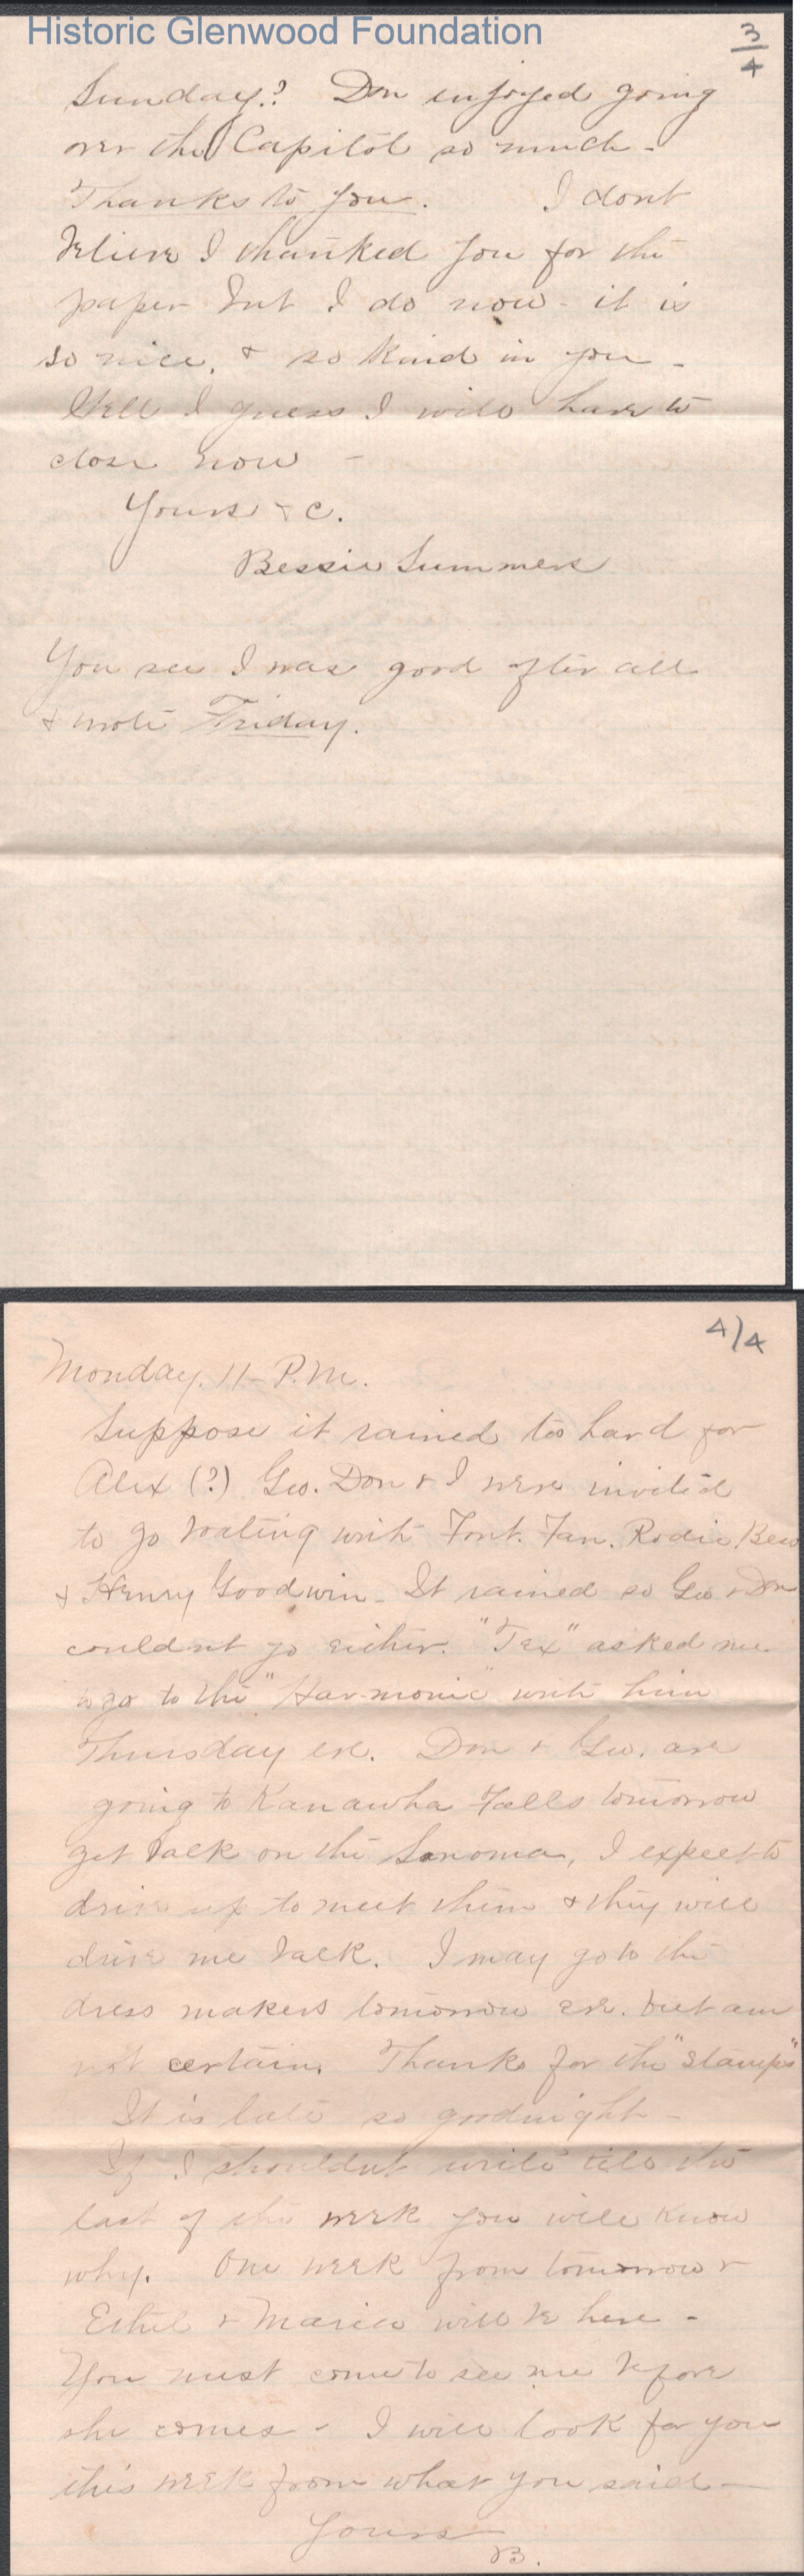 Historic Glenwood Foundation
3/4
Sunday? Don enjoyed going
over the Capitol so much -
Thanks to you. I dont
believe I thanked you for the
paper but I do now - it is
so nice, & so kind in you -
Well I guess I will have to
close now -
Yours & c.
Bessie Summers
You see I was good after all
& wrote Friday.
4/4
Monday. 11 - P.M.
Suppose it rained too hard for
Alex (?) Geo. Don & I were invited
to go boating with Font. Fan. Rodie, Bess
& Henry Goodwin - It rained so Geo & Don
couldn't go either. "Tex" asked me
to go to the "Harmonie" with him
Thursday eve. Don & Geo. are
going to Kanawha Falls tomorrow
get back on the Sonoma, I expect to
drive up to meet them & they will
drive me back. I may go to the
dress makers tomorrow eve. but am
not certain. Thanks for the "stamps"
It is late so goodnight -
If I shouldnt write till the
last of the week you will know
why. One week from tomorrow &
Ethel & Marie will be here -
You must come to see me before
she comes - I will look for you
this week from what you said -
Yours
B.